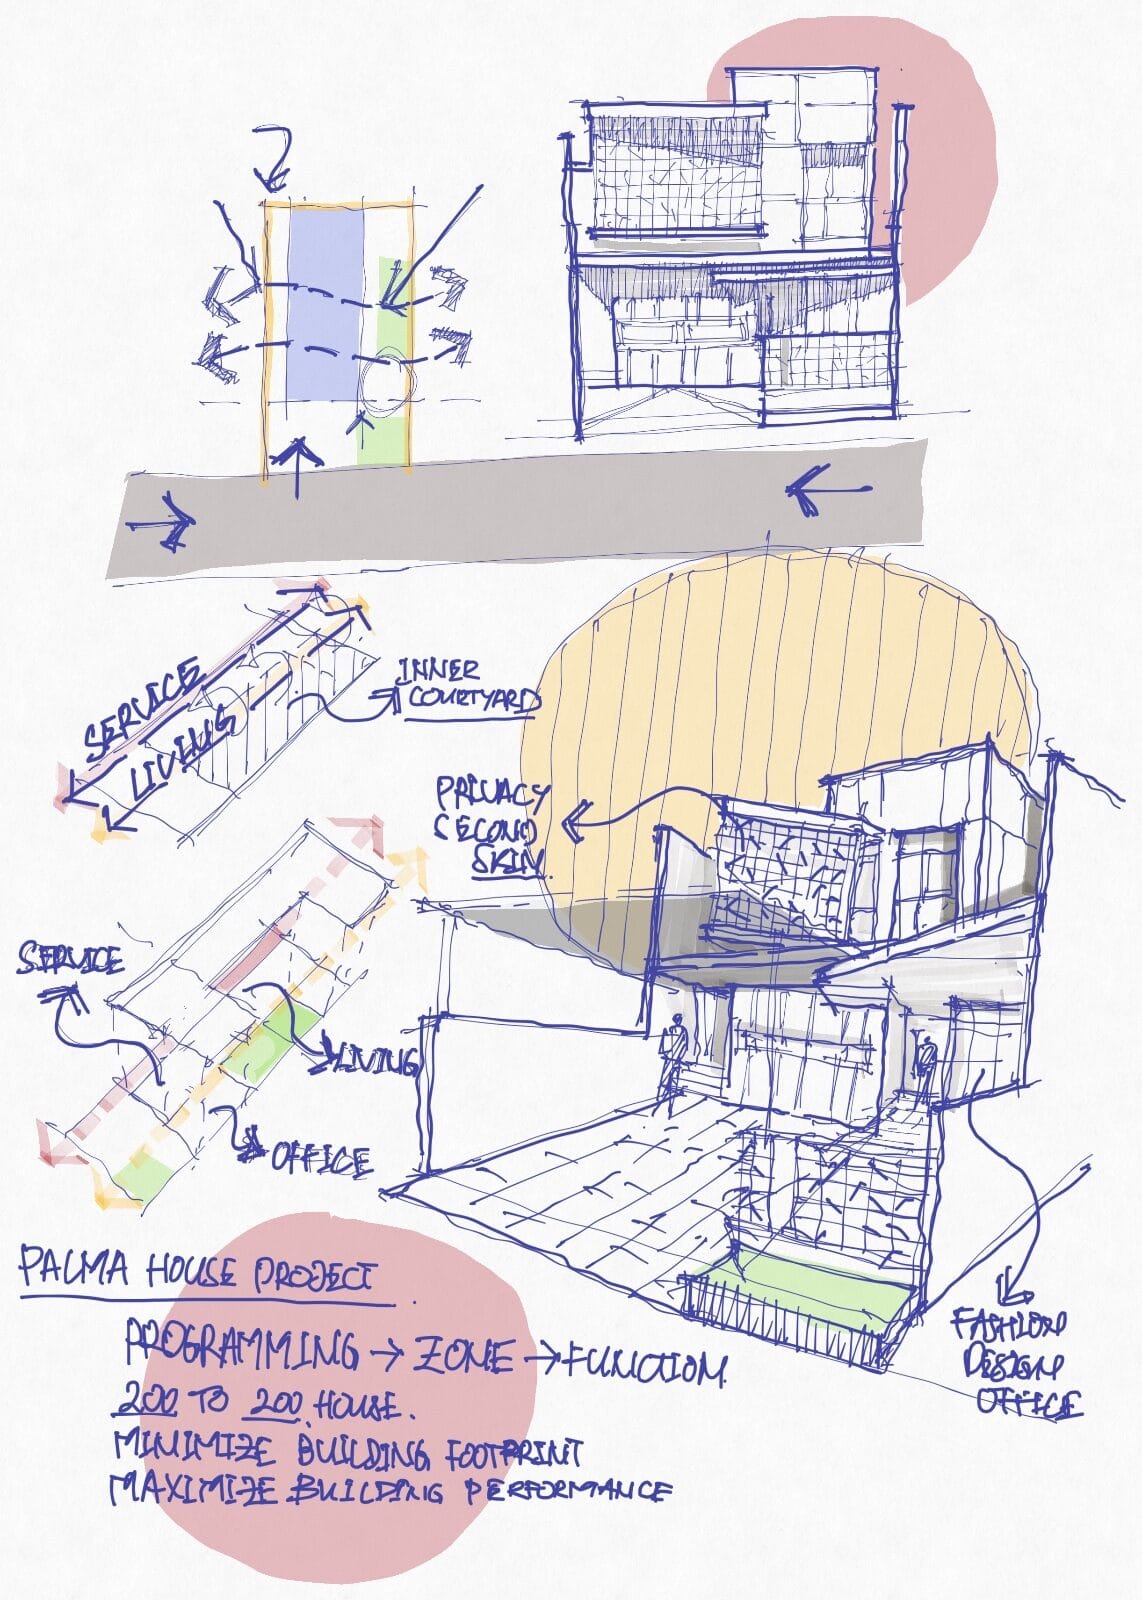 SERVICE
LIVING
INNER
COURTYARD
PRIVACY
SECOND
SKIN.
SERVICE
LIVING
OFFICE
PALMA HOUSE PROJECT
PROGRAMMING → ZONE → FUNCTION.
200 TO 200 HOUSE.
MINIMIZE BUILDING FOOTPRINT
MAXIMIZE BUILDING PERFORMANCE
FASHION
DESIGN
OFFICE